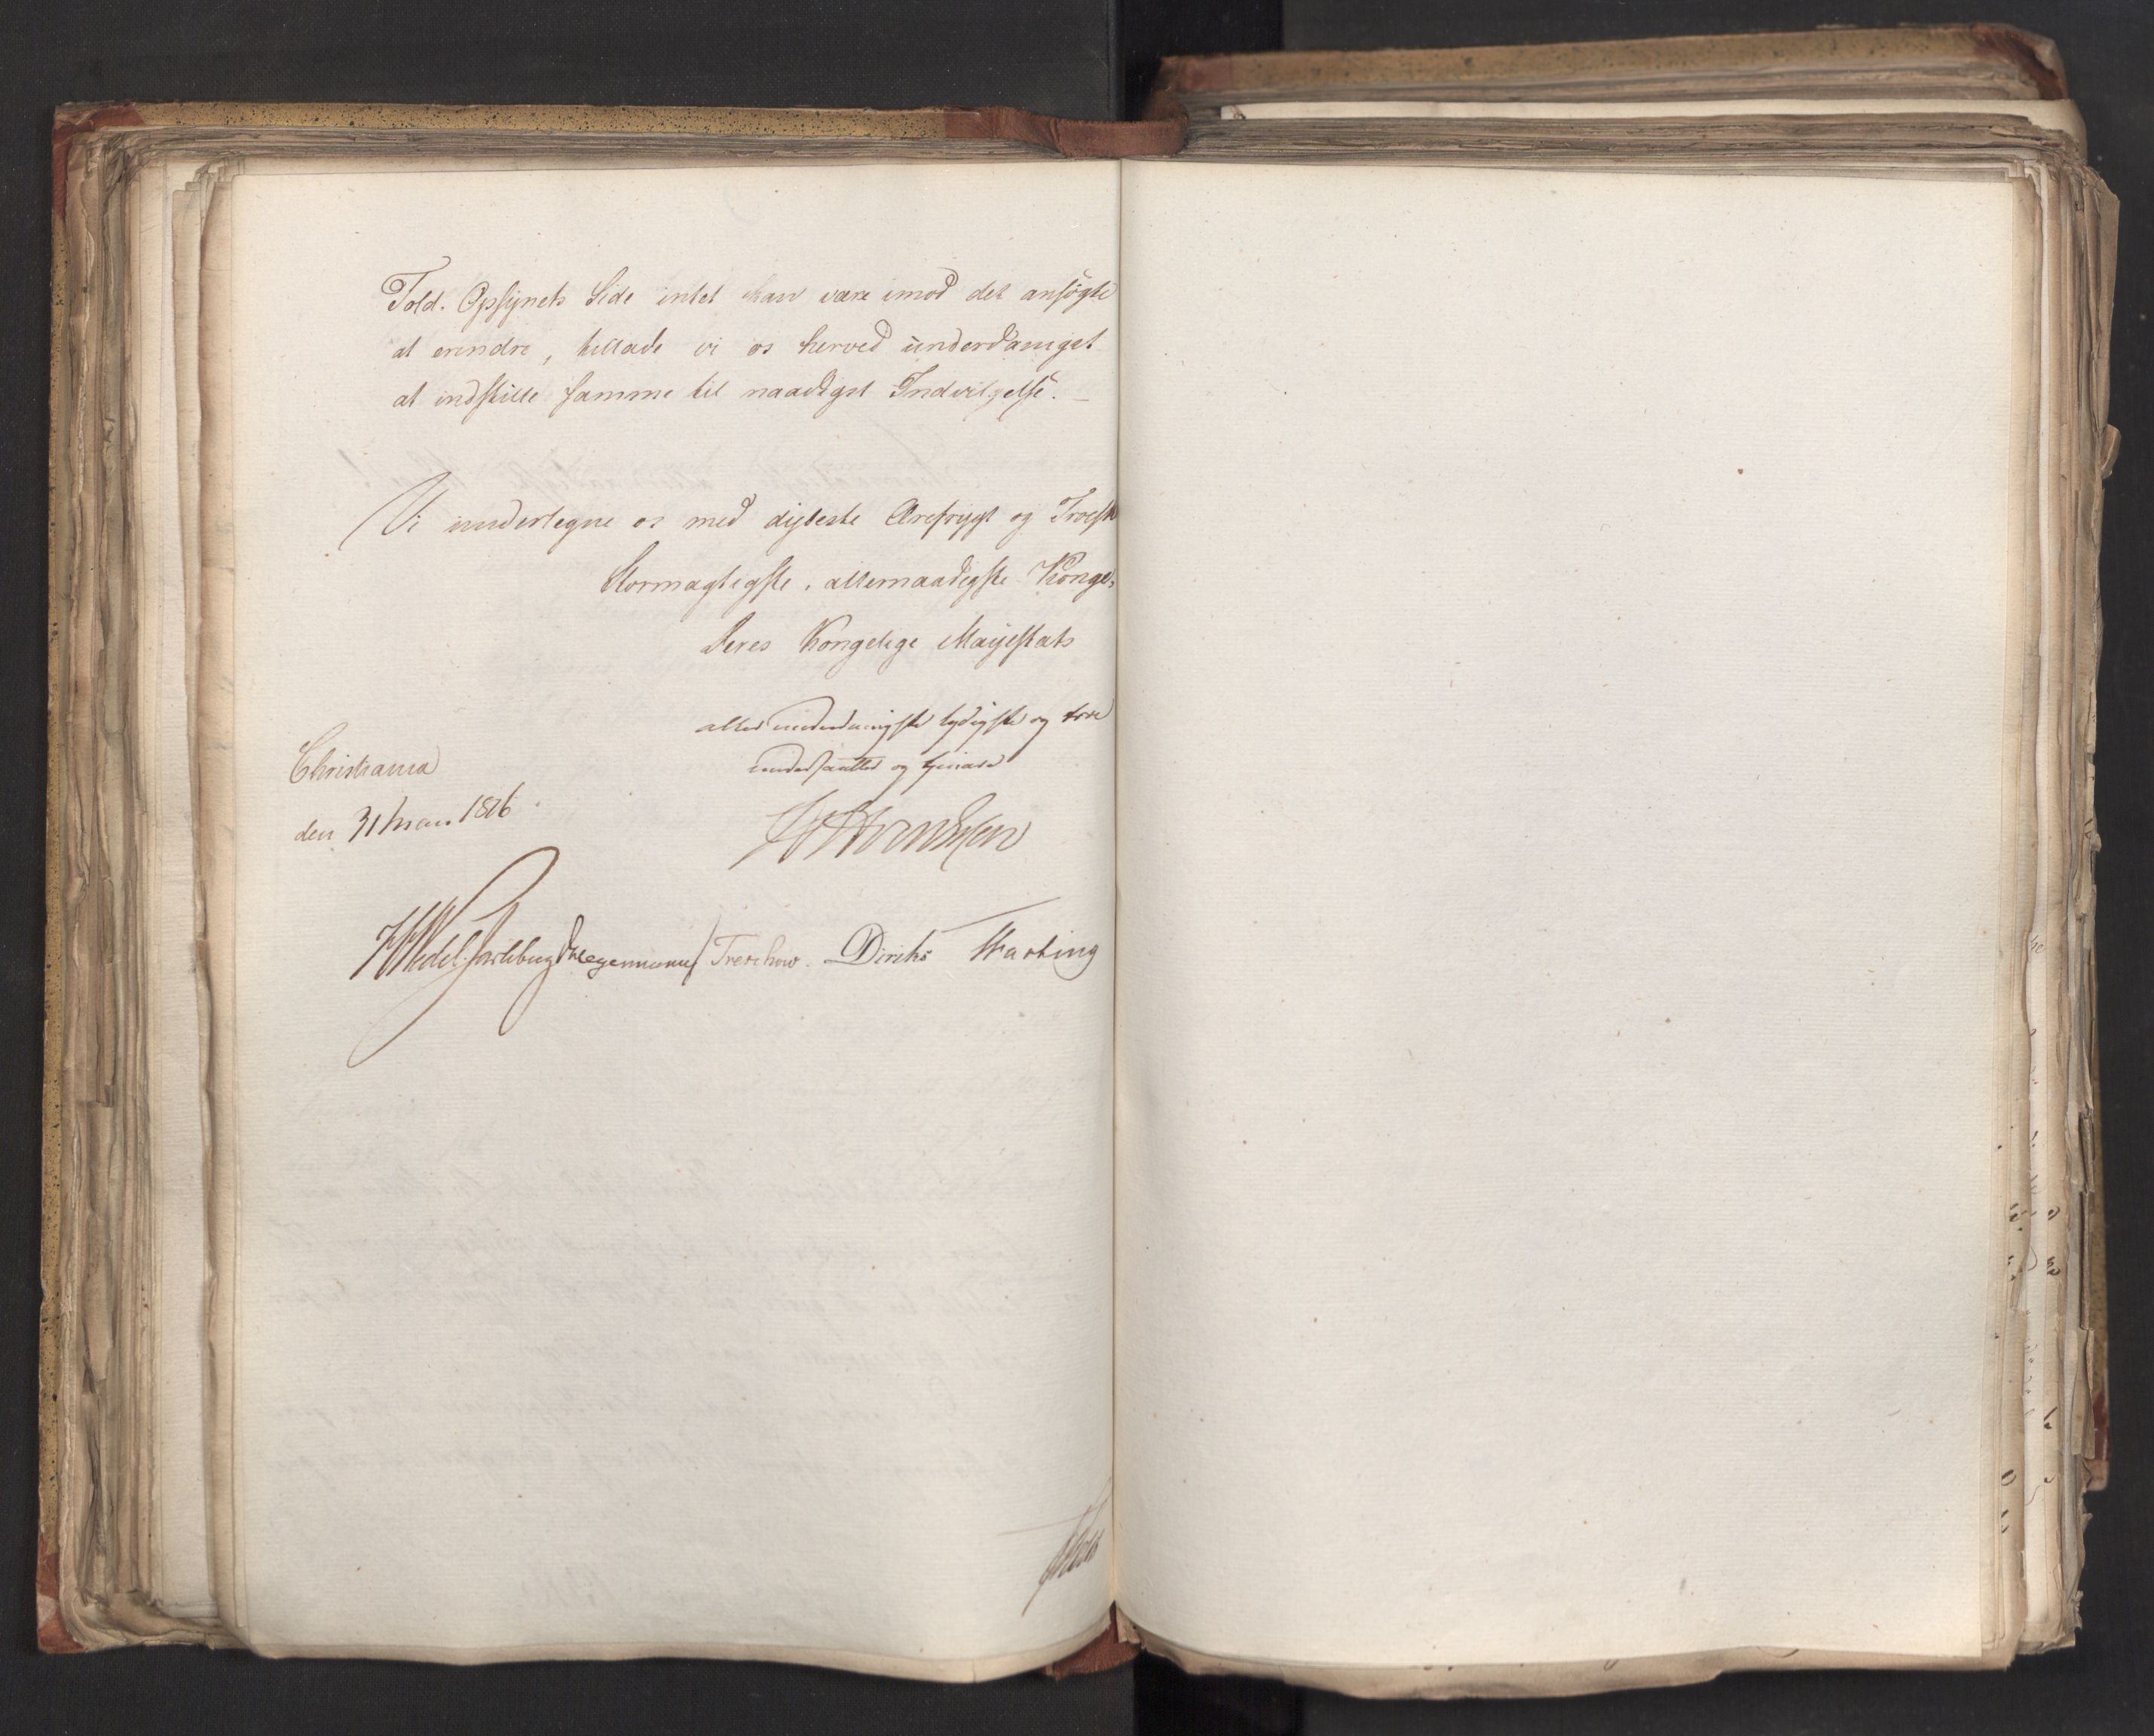 Told. Opsÿnets Side intet kan være imod det ansøgte
at erindre, tillade vi os herved underdanigst
at indstille samme til naadigst Indvilgelse. _
Vi undertegne os med dijbeste Ærefrygt og Troesk
Stormagtigste, allernaadigste Konge,
Deres Kongelige Mayestæts
allerunderdanigste lydigste og troe
undersaatter og tjenere
Christiania
den 31 Mars 1816
Wedel-Jarlsberg Hegermann Treschow. Diriks Motzfeldt